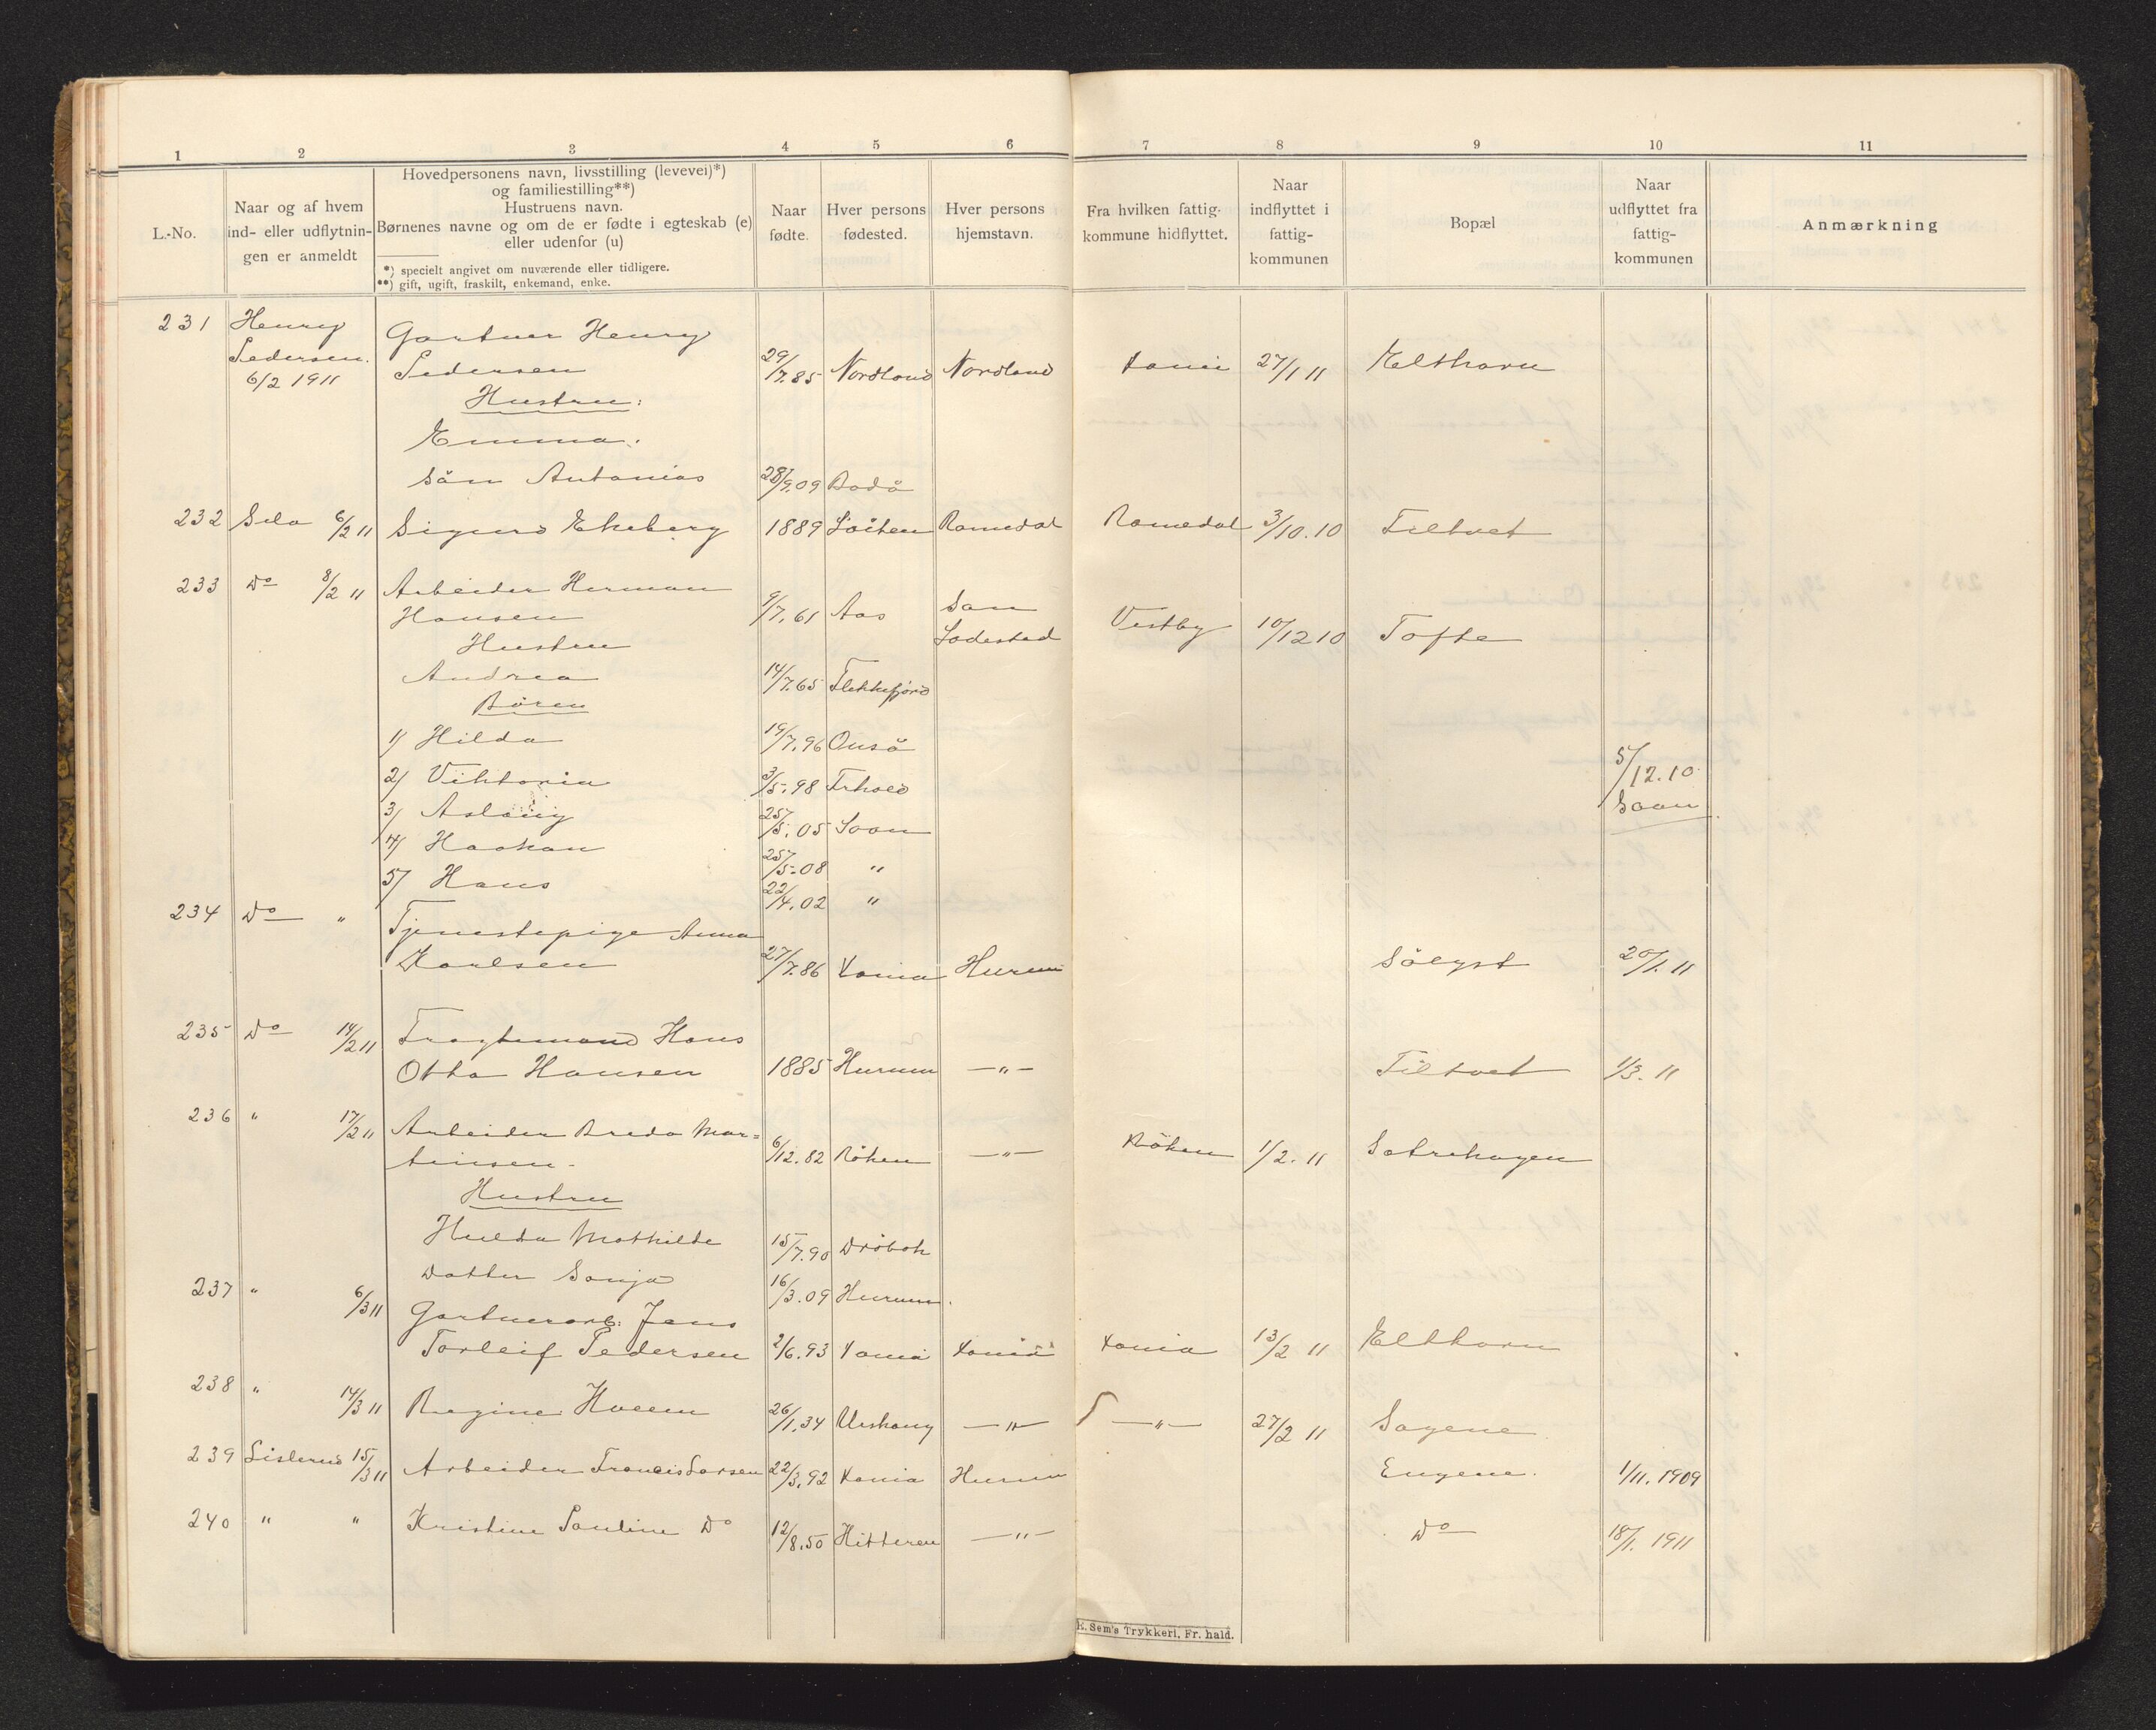 1 2 3 4 5 6 7 8 9 10 11
L.-No.
Naar og af hvem
ind- eller udflytnin-
gen er anmeldt
Hovedpersonens navn, livsstilling (levevei)*)
og familiestilling**)
Hustruens navn.
Børnenes navne og om de er fødte i egteskab (e)
eller udenfor (u)
*) specielt angivet om nuværende eller tidligere.
**) gift, ugift, fraskilt, enkemand, enke.
Naar
fødte.
Hver persons
fødested.
Hver persons
hjemstavn.
Fra hvilken fattig-
kommune hidflyttet.
Naar
indflyttet i
fattig-
kommunen
Bopæl
Naar
udflyttet fra
fattig-
kommunen
Anmærkning
231 Henry Gartner Henry
Pedersen. Pedersen 29/7.85 Nordland Nordland Kania 27/1 11 Elthorn
6/2 1911
Hustru:
Emma.
Sön Antonias 28/9.09 Bodö
232 Selv 6/2 11 Sigurd Ekeberg 1889 Löiten Romedal Romedal 3/10.10 Filtvet
233 Do 8/2 11 Arbeider Herman
Hansen 9/7.61 Aas Son Vestby 10/12 10 Tofte
Hustru Ladested
Andrea 14/7.65 Flekkefjord
Børn
1/ Hilda 19/7.96 Onsö
2/ Viktoria 3/5.98 Frkald 5/12.10
3/ Aslaug 25/5.05 Soon Soon
4/ Haakon 25/5.08 "
5/ Hans 22/4.02 "
234 Do " Tjenestepige Anna
Karlsen 27/7.86 Kania Hurum Sölyst 20/1.11
235 Do 14/2 11 Fragtemand Hans
Otto Hansen 1885 Hurum —"— Filtvet 1/3.11
236 " 17/2 11 Arbeider Bredo Mar=
tinsen 6/12.82 Röken —"— Röken 1/2.11 Sætrehagen
Hustru
Hulda Mathilde 15/7.90 Dröbak
Datter Sonja 16/3.09 Hurum.
237 " 6/3 11 Gartnerarb: Jens
Torleif Pedersen 2/6.93 Kania Kania Kania 13/2 11 Elthorn
238 " 14/3 11 Regine Hveem 26/1.34 Urskoug —"— —"— 27/2 11 Sagene
239 Lislerud 15/3 11 Arbeider Francis Larsen 22/3.92 Kania Hurum Engene. 1/11.1909
240 " " Kristine Pauline Do 12/8.50 Hitteren —"— Do 18/1.1911
K. Sem's Trykkeri, Fr. hald.